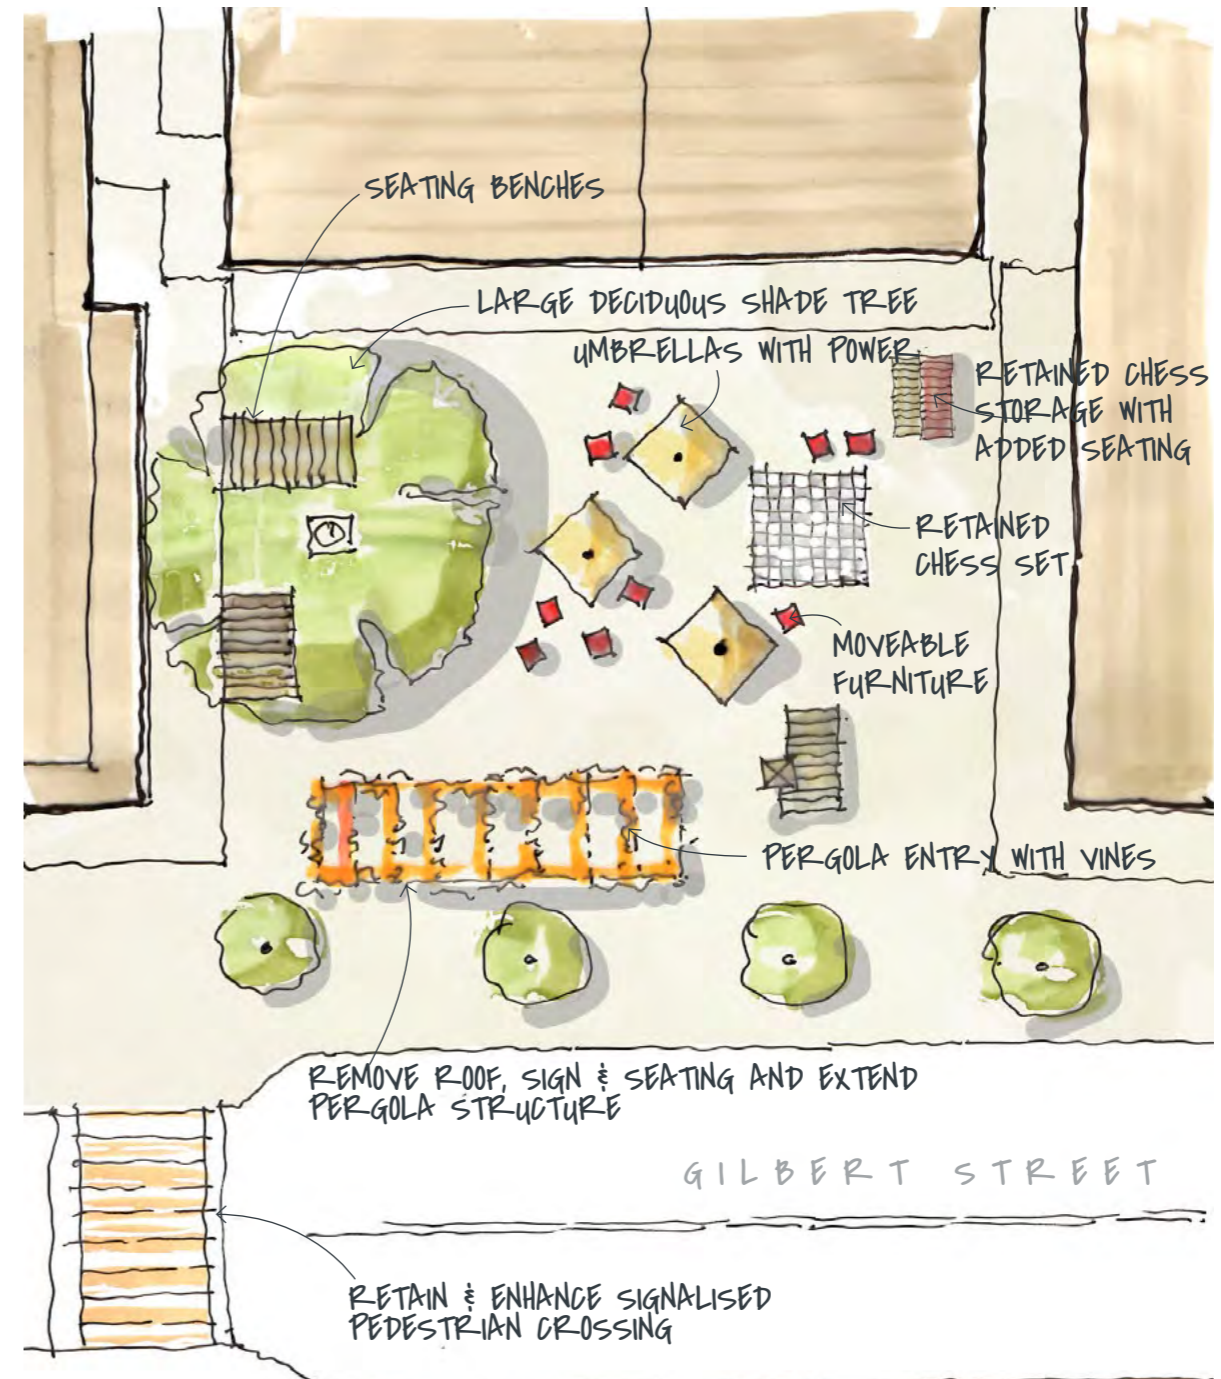 SEATING BENCHES
LARGE DECIDUOUS SHADE TREE
UMBRELLAS WITH POWER
RETAINED CHESS
STORAGE WITH
ADDED SEATING
RETAINED
CHESS SET
MOVEABLE
FURNITURE
PERGOLA ENTRY WITH VINES
REMOVE ROOF, SIGN & SEATING AND EXTEND
PERGOLA STRUCTURE
GILBERT STREET
RETAIN & ENHANCE SIGNALISED
PEDESTRIAN CROSSING